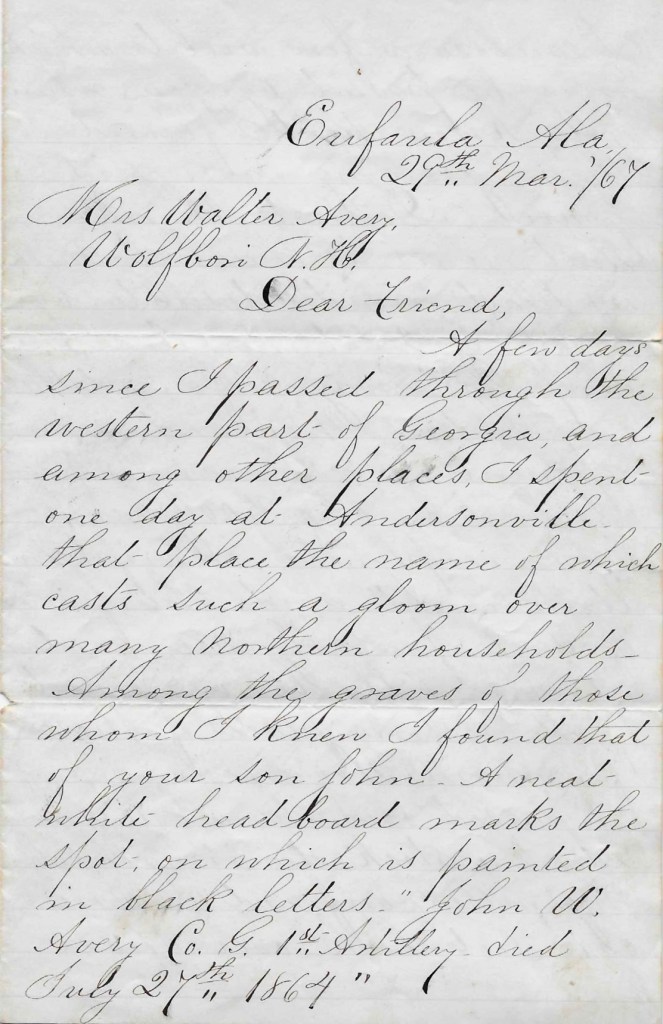 Eufaula, Ala,
29th Mar. '/67
Mrs Walter Avery,
Wolfbori N. H.
Dear Friend,
A few days
since I passed through the
western part of Georgia, and
among other places, I spent
one day at Andersonville -
that place the name of which
casts such a gloom over
many Northern households -
Among the graves of those
whom I knew I found that
of your son John - A neat
white head board marks the
spot, on which is painted
in black letters - "John W.
Avery Co. G. 1st Artillery - died
July 27th 1864"